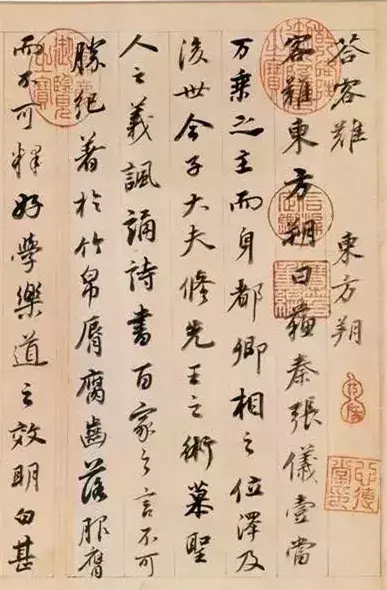 答客難 東方朔
客難東方朔曰蘇秦張儀壹當
万乘之主而身都卿相之位澤及
後世今子大夫修先王之術慕聖
人之義諷誦詩書百家之言不可
勝紀著於竹帛脣腐齒落服膺
而不可釋好學樂道之效明白甚